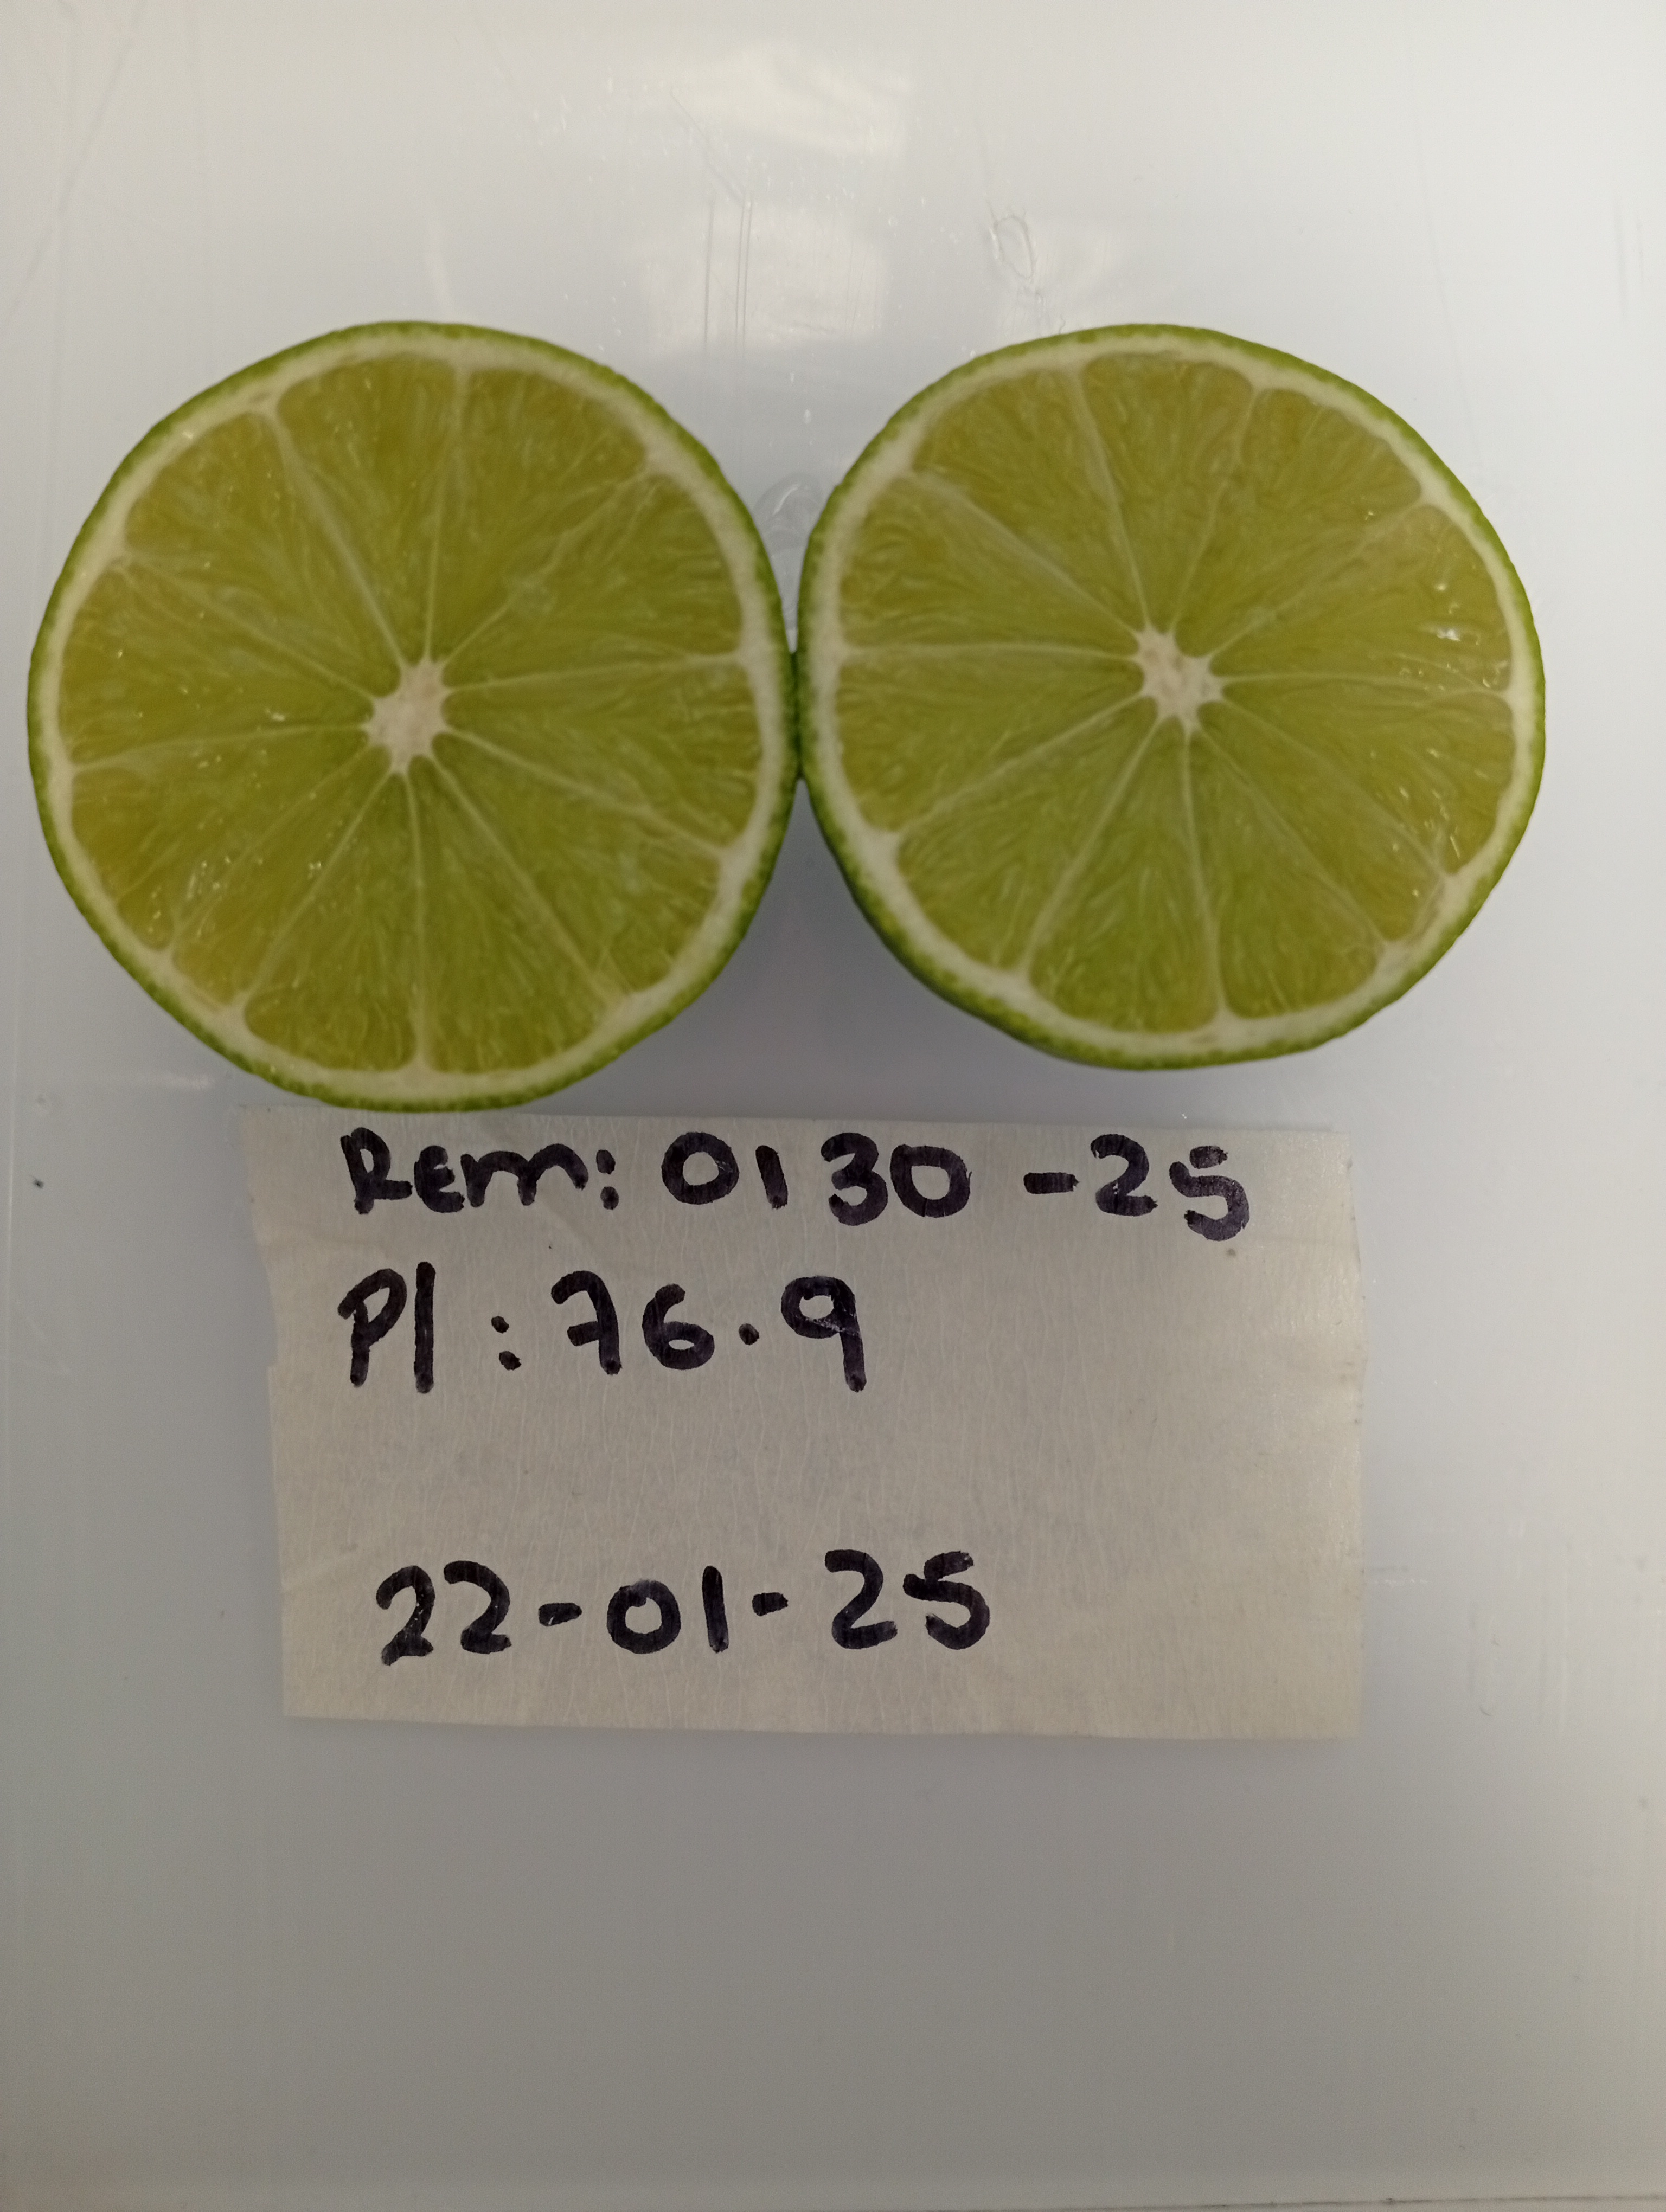 Rem: 0130-25
Pl: 76.9
22-01-25